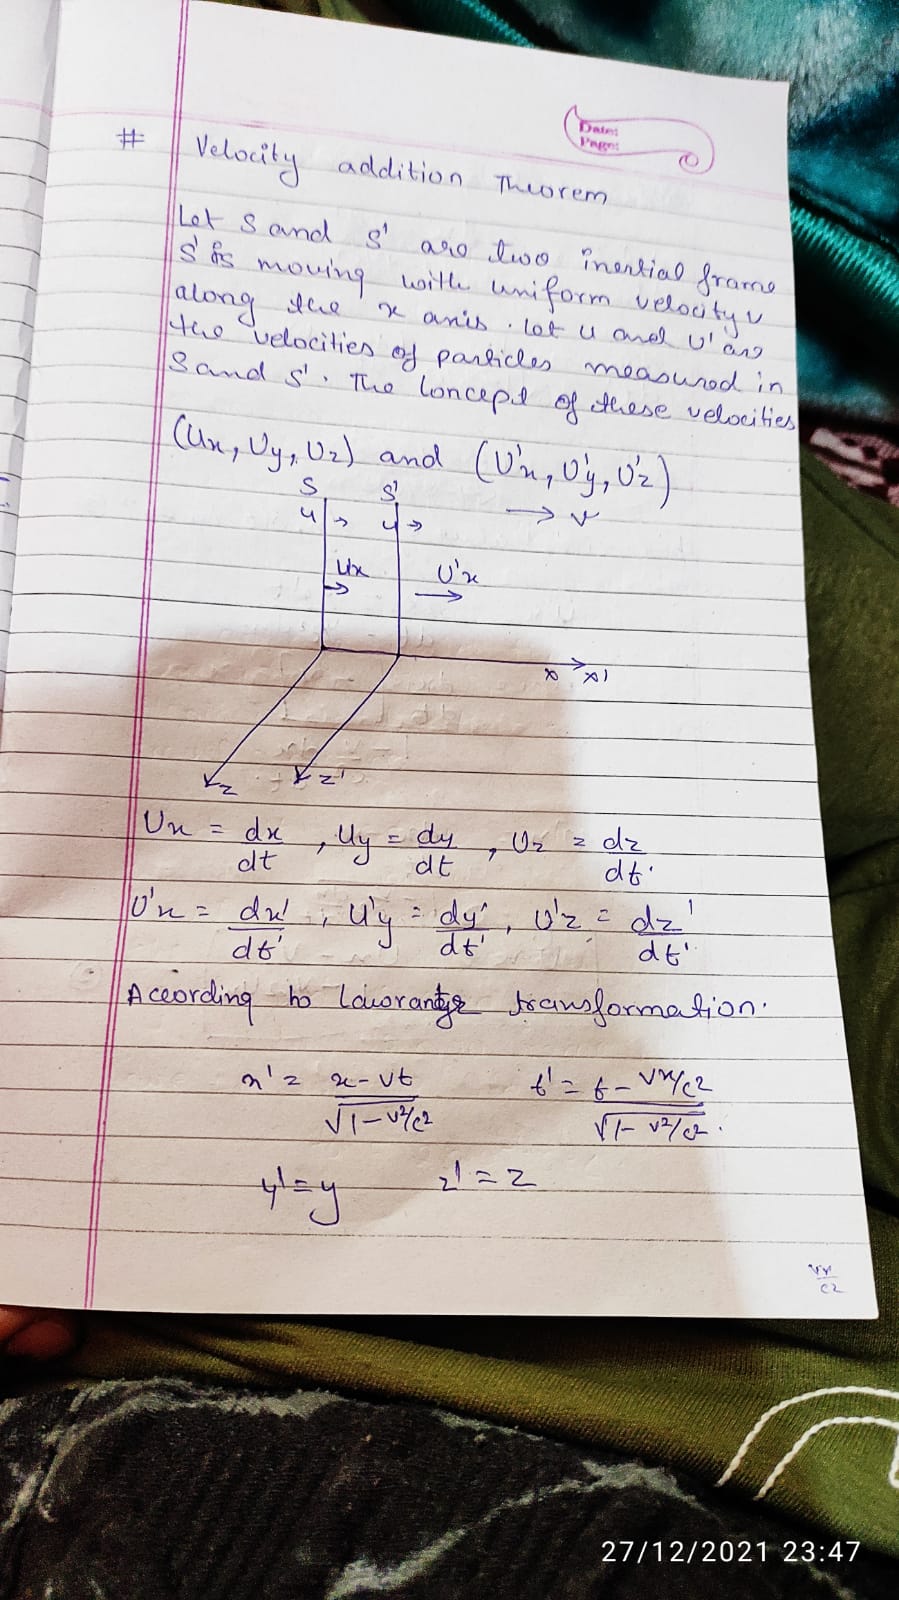 Date:
Page:
# Velocity addition Theorem
Let S and S' are two inertial frame
S' is moving with uniform velocity v
along the x axis. let u and u' are
the velocities of particles measured in
S and S'. The Concept of these velocities
(Ux, Uy, Uz) and (U'x, U'y, U'z)
S S'
y → y → → v
Ux → U'x →
x x'
z z'
Ux = dx/dt , Uy = dy/dt , Uz = dz/dt.
U'x = dx'/dt' , U'y = dy'/dt' , U'z = dz'/dt'
According to transformation.
x' = x-vt/√1-v²/c² t' = t-vx/c²/√1-v²/c².
y' = y z' = z
c2
27/12/2021 23:47